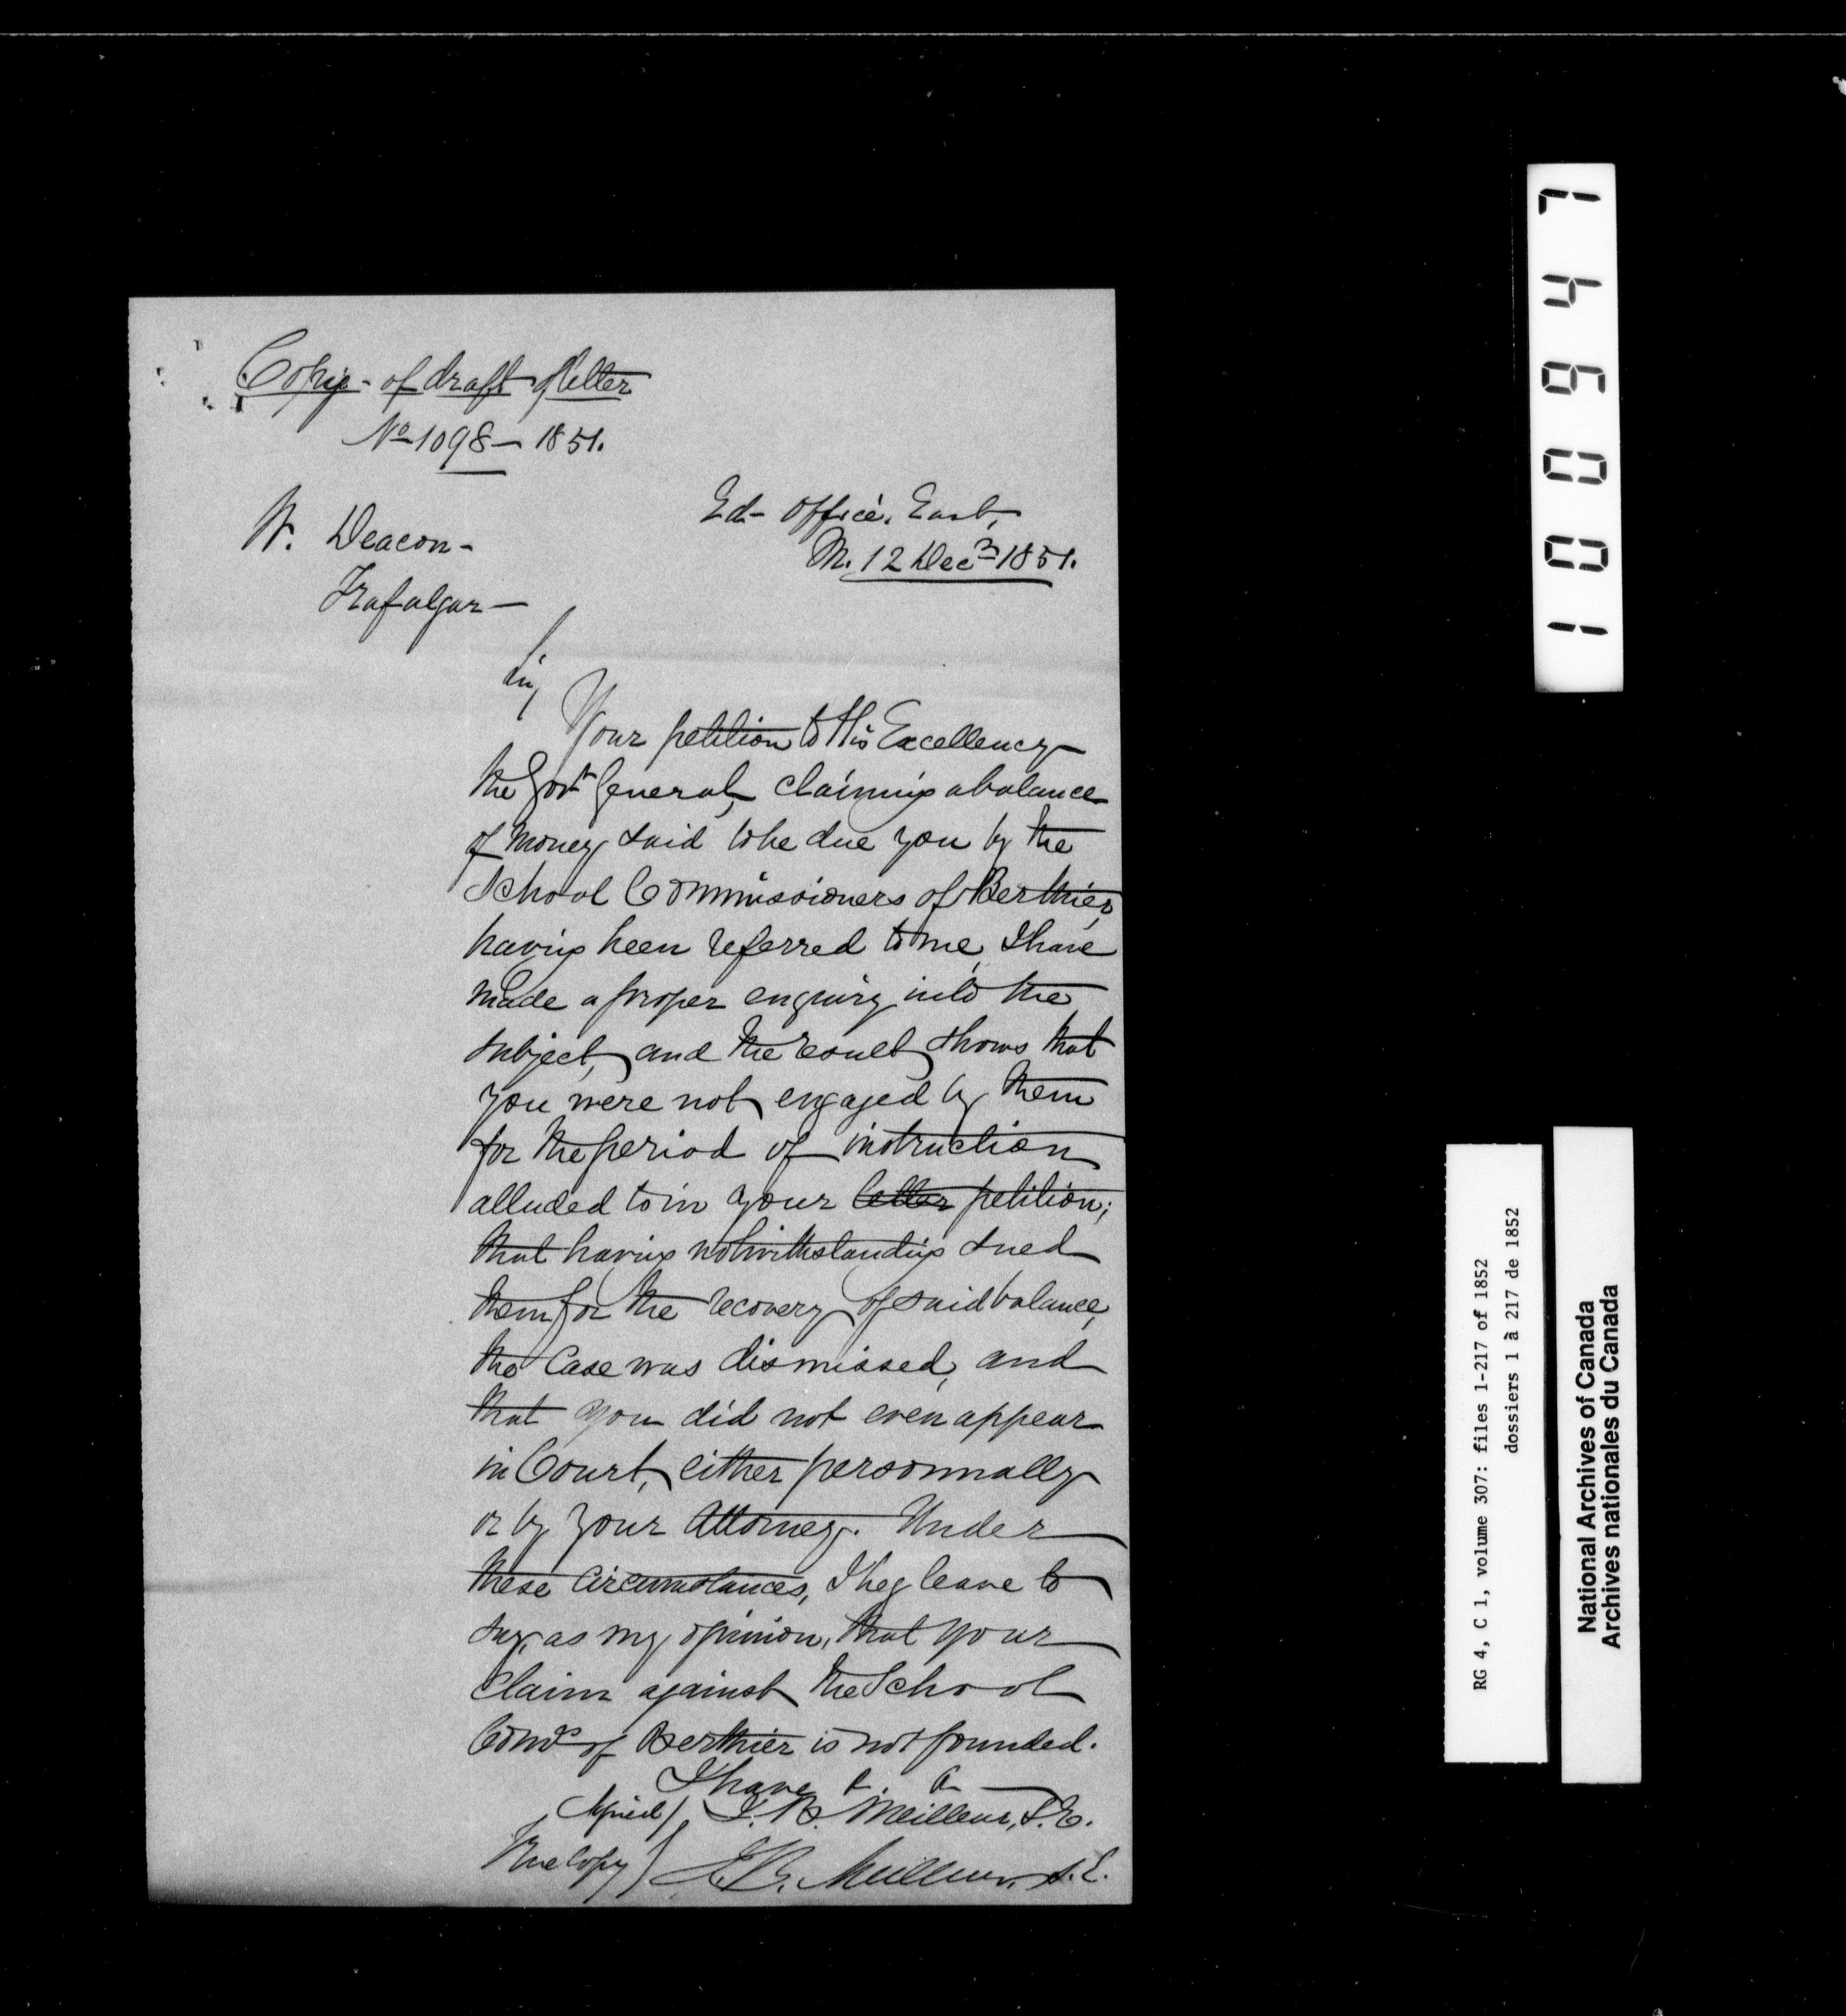 Copy - of draft of letter
No 1098 - 1851.
Ed- Office, East,
M. 12 Decr 1851.
W. Deacon -
Trafalgar -
Sir,
Your petition to His Excellency
the Govr General, claiming a balance
of money said to be due you by the
School Commissioners of Berthier,
having been referred to me, I have
made a proper enquiry into the
subject, and the result shows that
you were not engaged by them
for the period of instruction
alluded to in your letter petition;
that having notwithstanding sued
them for the recovery of said balance,
the Case was dismissed, and
that you did not even appear
in Court, either personnally
or by your Attorney. Under
these circumstances, I beg leave to
say, as my opinion, that your
claim against the School
Comrs of Berthier is not founded.
I have &. &
(Signed) J. B. Meilleur, S.E.
True Copy) J.B. Meilleur, S.E.
100947
RG 4, C 1, volume 307: files 1-217 of 1852
dossiers 1 à 217 de 1852
National Archives of Canada
Archives nationales du Canada